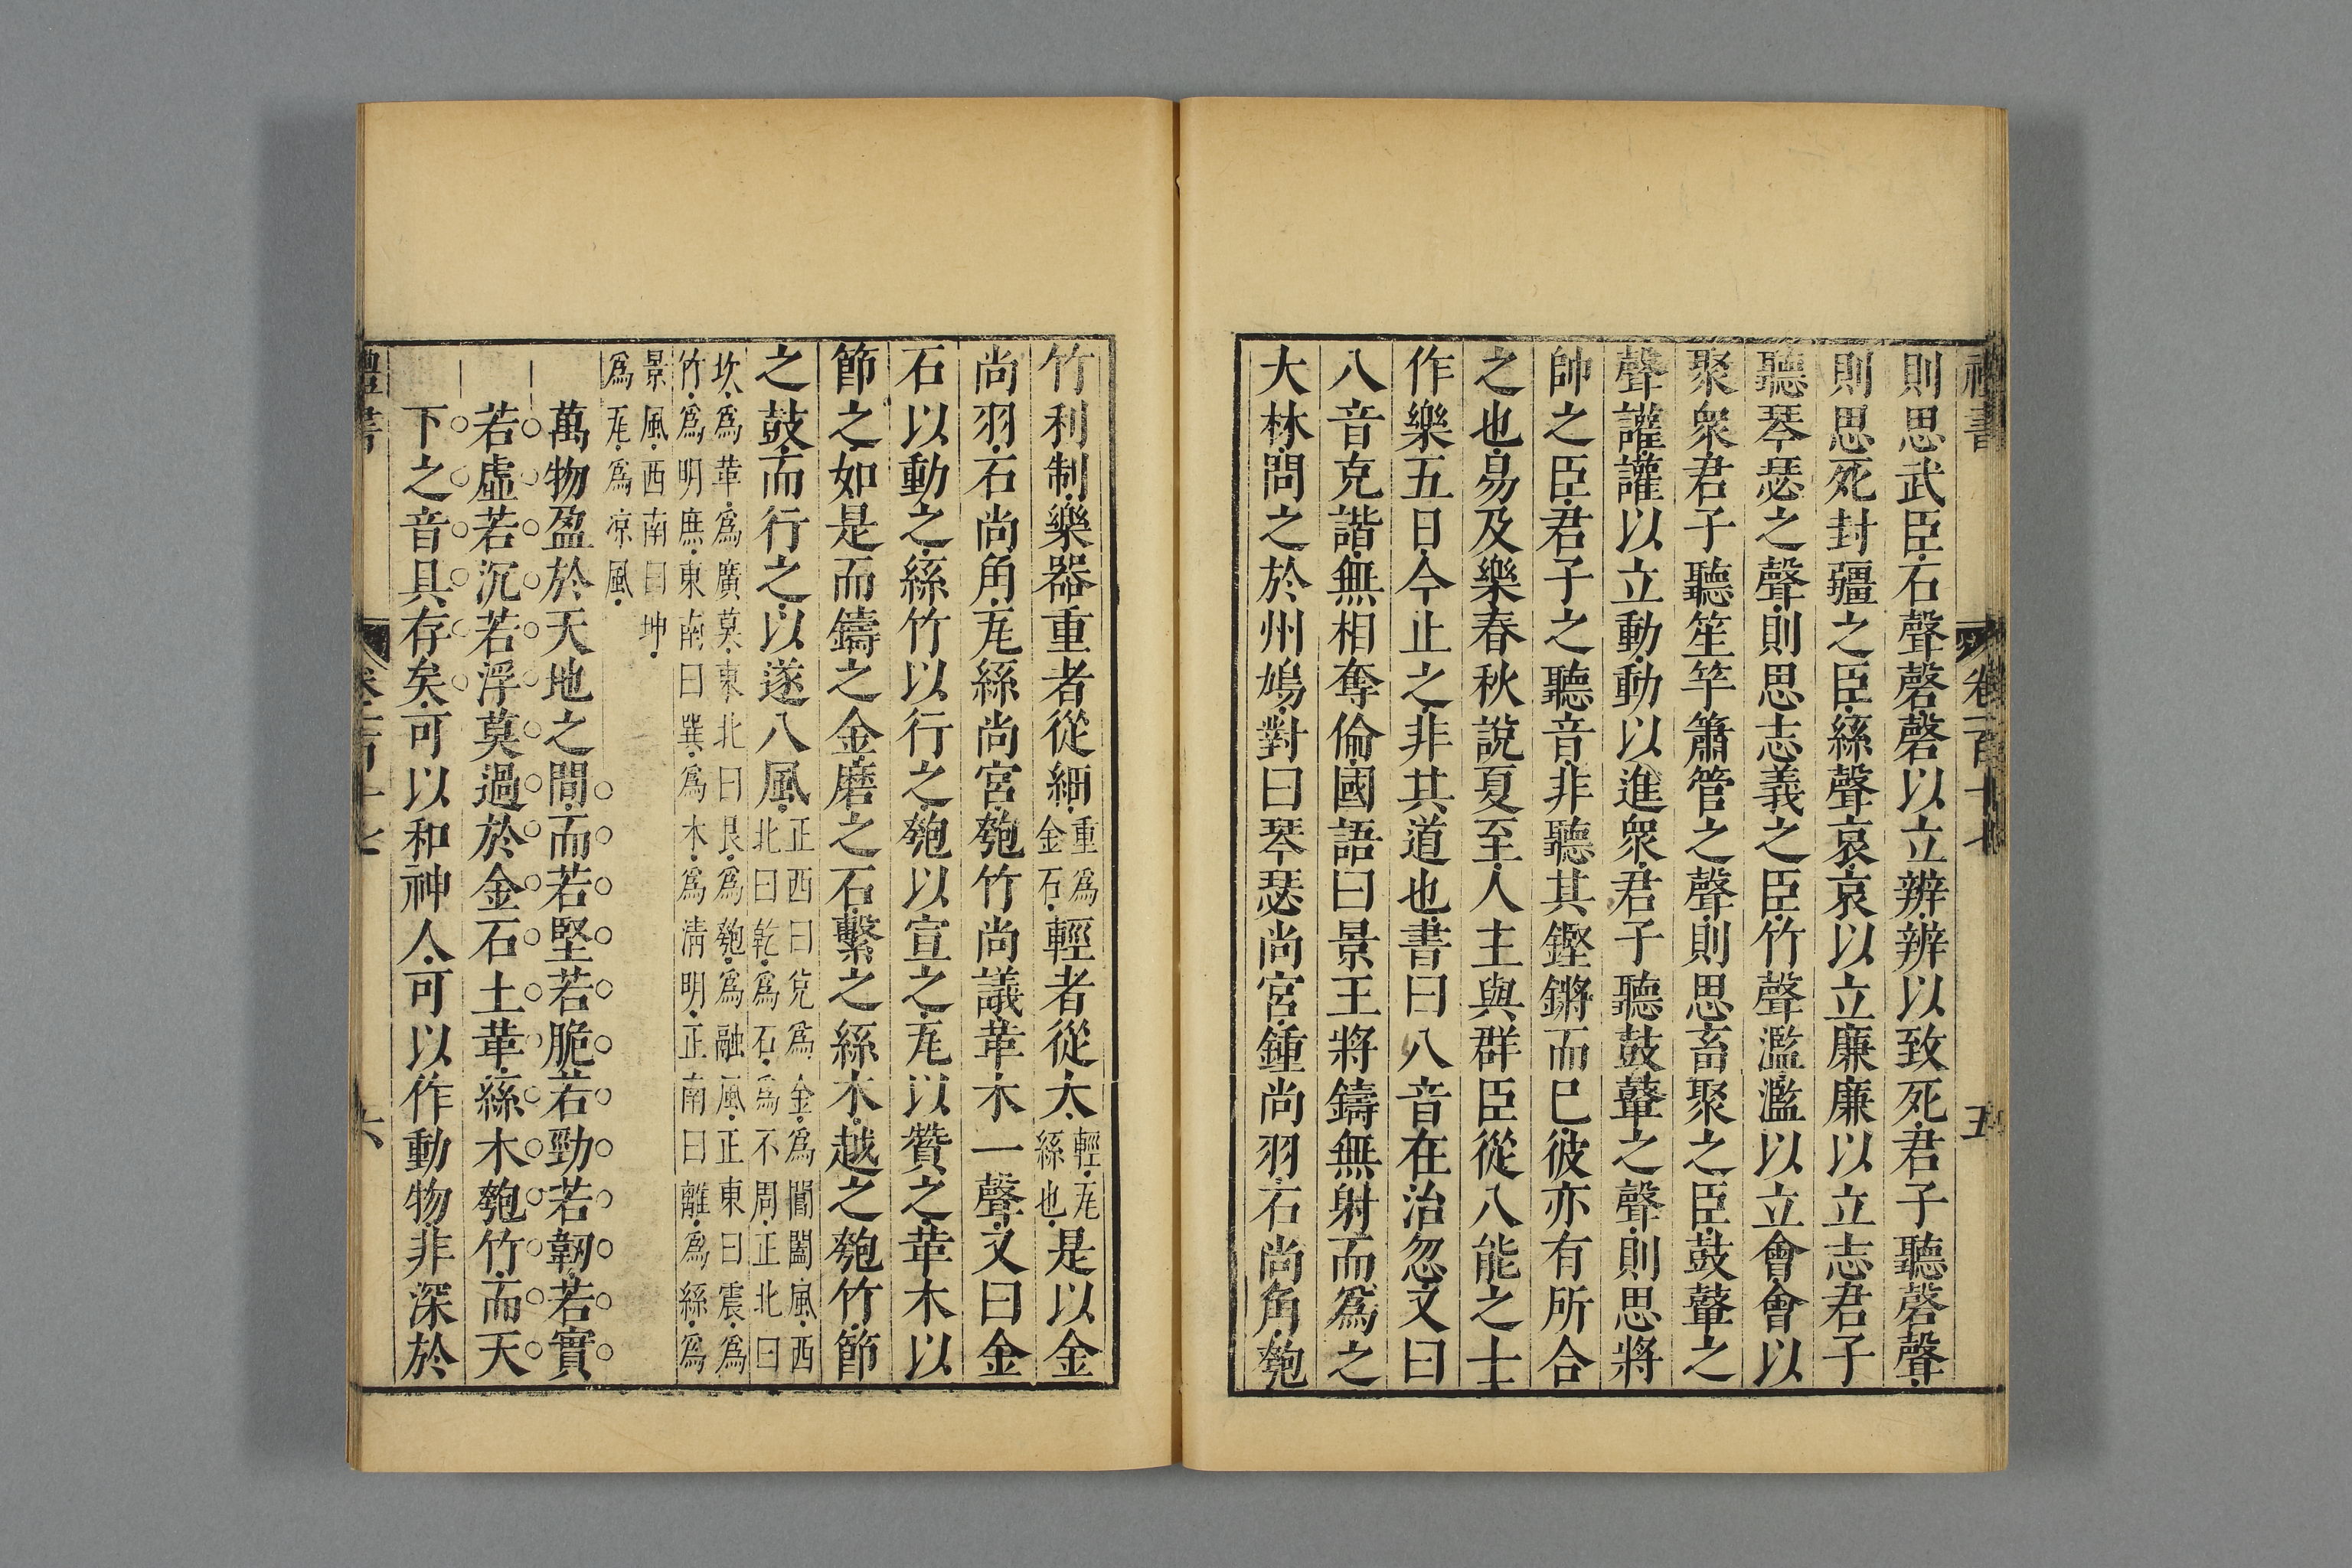 禮書 卷一百十七 五
則思武臣石聲磬磬以立辨辨以致死君子聽磬聲
則思死封疆之臣絲聲哀哀以立廉廉以立志君子
聽琴瑟之聲則思志義之臣竹聲濫濫以立會會以
聚衆君子聽笙竽簫管之聲則思畜聚之臣鼓鼙之
聲讙讙以立動動以進衆君子聽鼓鼙之聲則思將
帥之臣君子之聽音非聽其鏗鏘而巳彼亦有所合
之也易及樂春秋說夏至人主與群臣從八能之士
作樂五日今止之非其道也書曰八音在治忽又曰
八音克諧無相奪倫國語曰景王將鑄無射而爲之
大林問之於州鳩對曰琴瑟尚宮鍾尚羽石尚角匏
竹利制樂器重者從細重爲金石輕者從大輕瓦絲也是以金
尚羽石尚角瓦絲尚宮匏竹尚議革木一聲又曰金
石以動之絲竹以行之匏以宣之瓦以贊之革木以
節之如是而鑄之金磨之石繫之絲木越之匏竹節
之鼓而行之以遂八風正西曰兌爲金爲閶闔風西北曰乾爲石爲不周正北曰
坎爲革爲廣莫東北曰艮爲匏爲融風正東曰震爲竹爲明庶東南曰巽爲木爲清明正南曰離爲絲爲
景風西南曰坤爲瓦爲凉風
萬物盈於天地之間而若堅若脆若勁若韌若實
若虛若沉若浮莫過於金石土革絲木匏竹而天
下之音具存矣可以和神人可以作動物非深於
禮書 卷一百十七 六